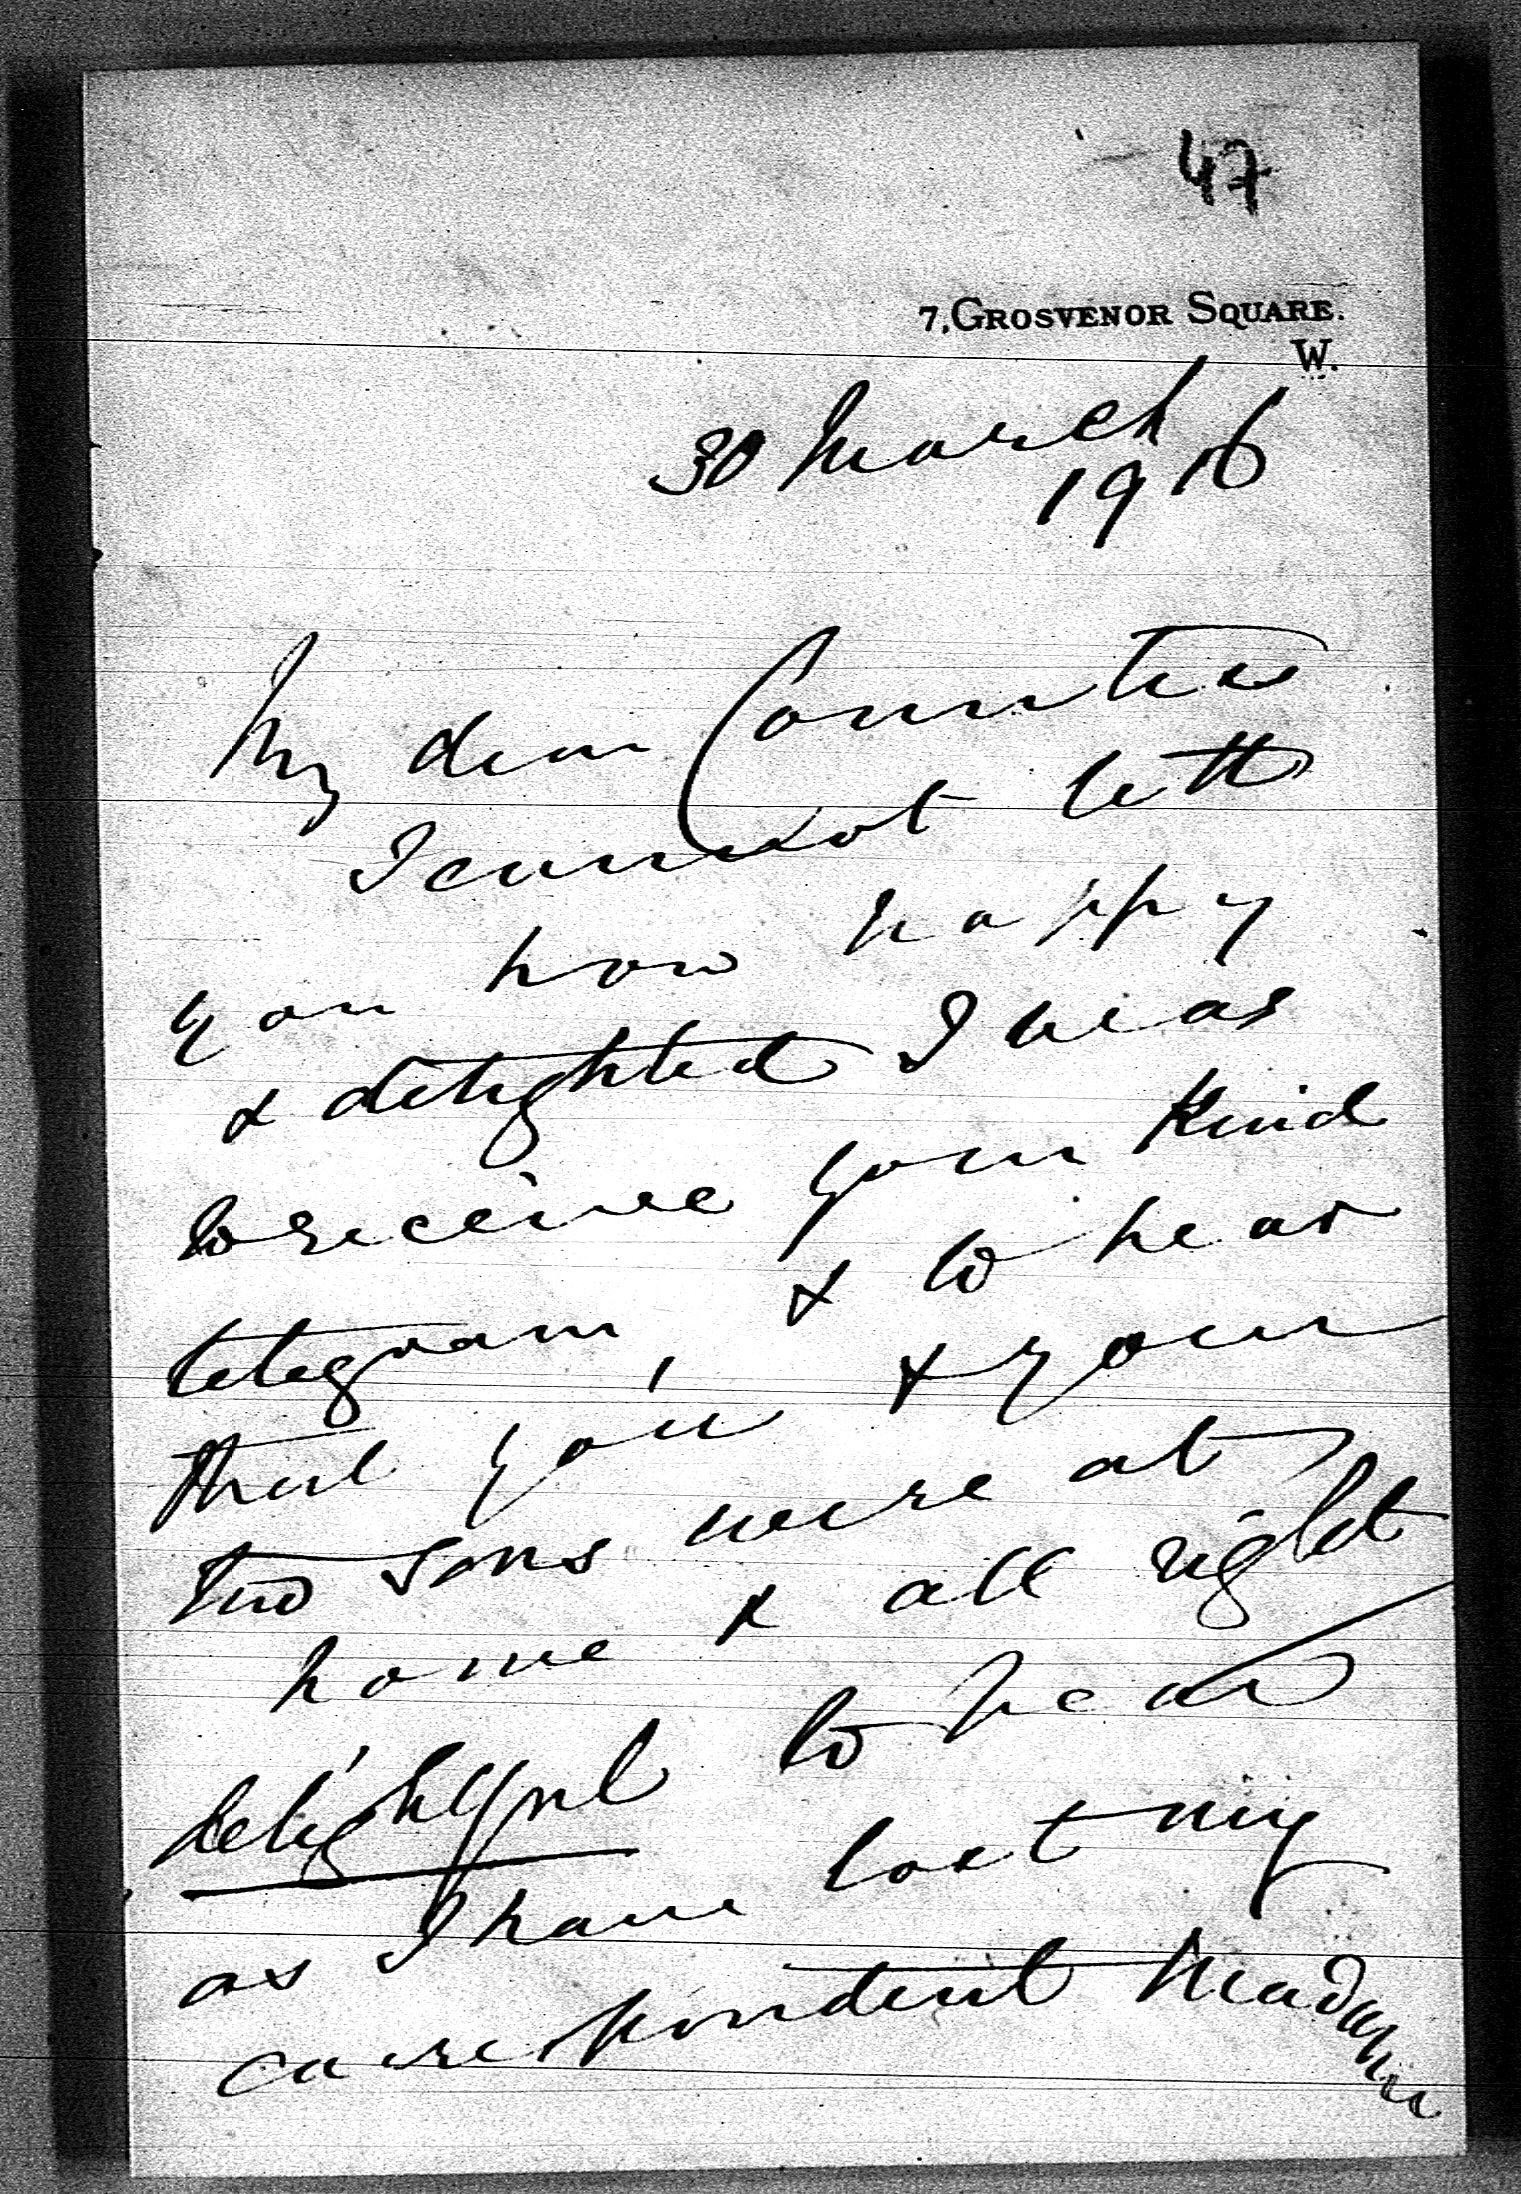 47
7, GROSVENOR SQUARE.
W.
30 March
1916
My dear Countess
I cannot tell
you how happy
& delighted I was
to receive your kind
telegram, & to hear
that you & your
two sons were at
home & all right
delightful to hear
as I have lost my
correspondent Madame